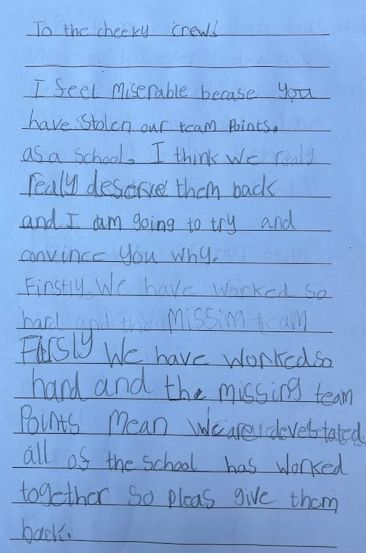 To the cheeky crew!
I feel Miserable becase you
have stolen our team points.
as a school. I think we realy
realy deserve them back
and I am going to try and
convince you why.
Firstly, We have worked so
hard and the missim team
Firsly We have worked so
hard and the missing team
Points Mean We are devetstated
all of the school has worked
together so pleas give them
back.